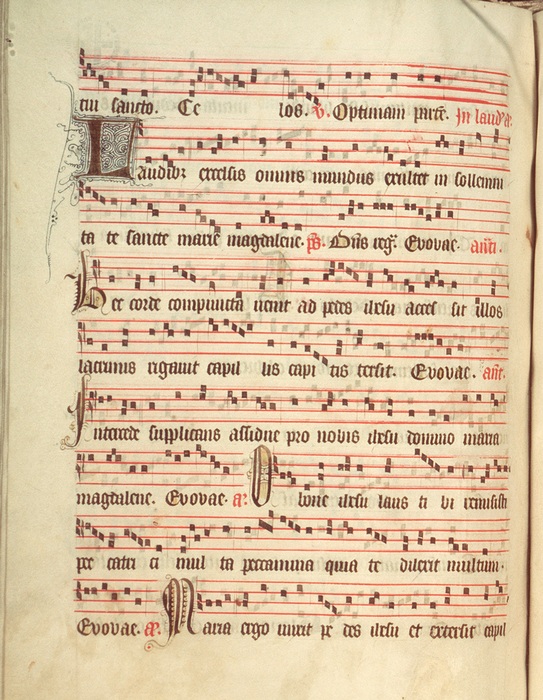 tui sancto. Ce los. v. Optimam parte. In laud'
Laudibz excelsis omnis mundus exultet in sollemni
ta te sancte marie magdalene. ps. Dns reg. Evovae. ant.
Hec corde compuncta venit ad pedes ihesu acces sit illos
lacrimis rigavit capil lis capi tis tersit. Evovae. ant.
Intercede supplicans assidue pro nobis ihesu domino maria
magdalene. Evovae. a. O bone ihesu laus ti bi remisisti
pec catri ci mul ta peccamina quia te dilexit multum.
Evovae. a. Maria ergo unxit pe des ihesu et extersit capil